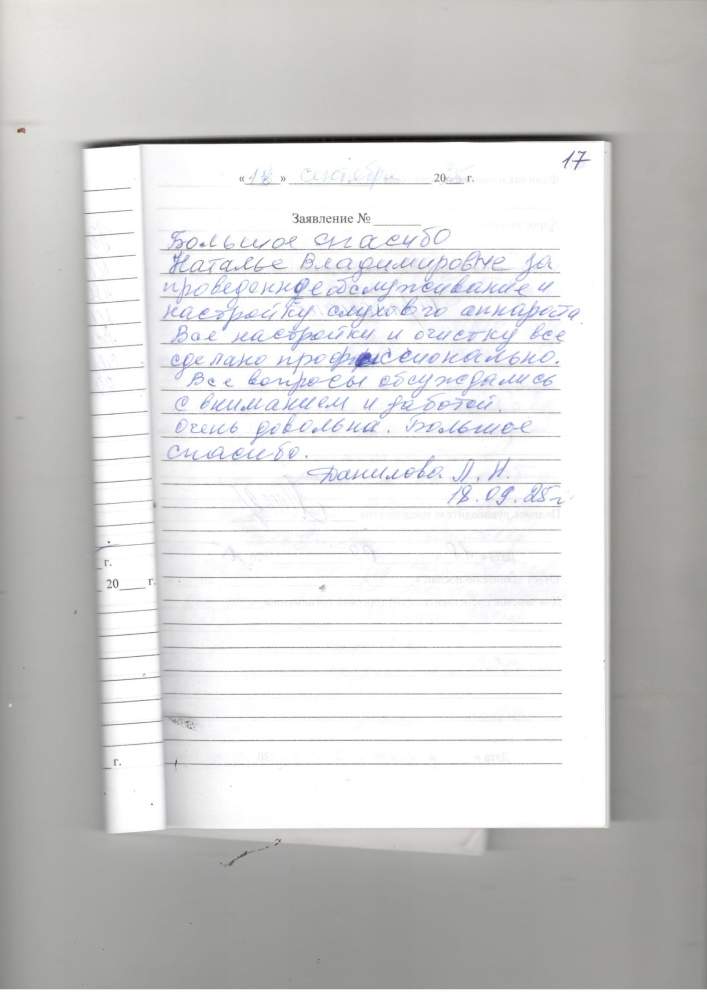 17
«18» сентября 2025 г.
Заявление № ______
Большое спасибо
Наталье Владимировне за
проведенное обслуживание и
настройку слухового аппарата.
Все настройки и очистку все
сделано профессионально.
Все вопросы обсуждались
с вниманием и заботой.
Очень довольна. Большое
спасибо.
Данилова Л. Н.
18.09.25 г.
г.
20____ г.
г.